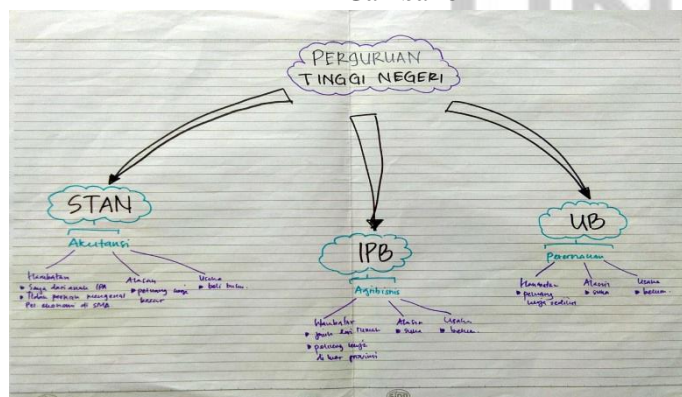 PERGURUAN
TINGGI NEGERI
STAN
Akutansi
Hambatan
Saya dari anak IPA
Tidak pernah mengenal
Pel. ekonomi di SMA
Alasan
peluang kerja
besar
Usaha
beli buku.
IPB
Agribisnis
Hambatan
jauh dari rumah
peluang kerja
di luar provinsi
Alasan
suka
Usaha
belum.
UB
Peternakan
Hambatan
peluang
kerja sedikit
Alasan
suka
Usaha
belum.